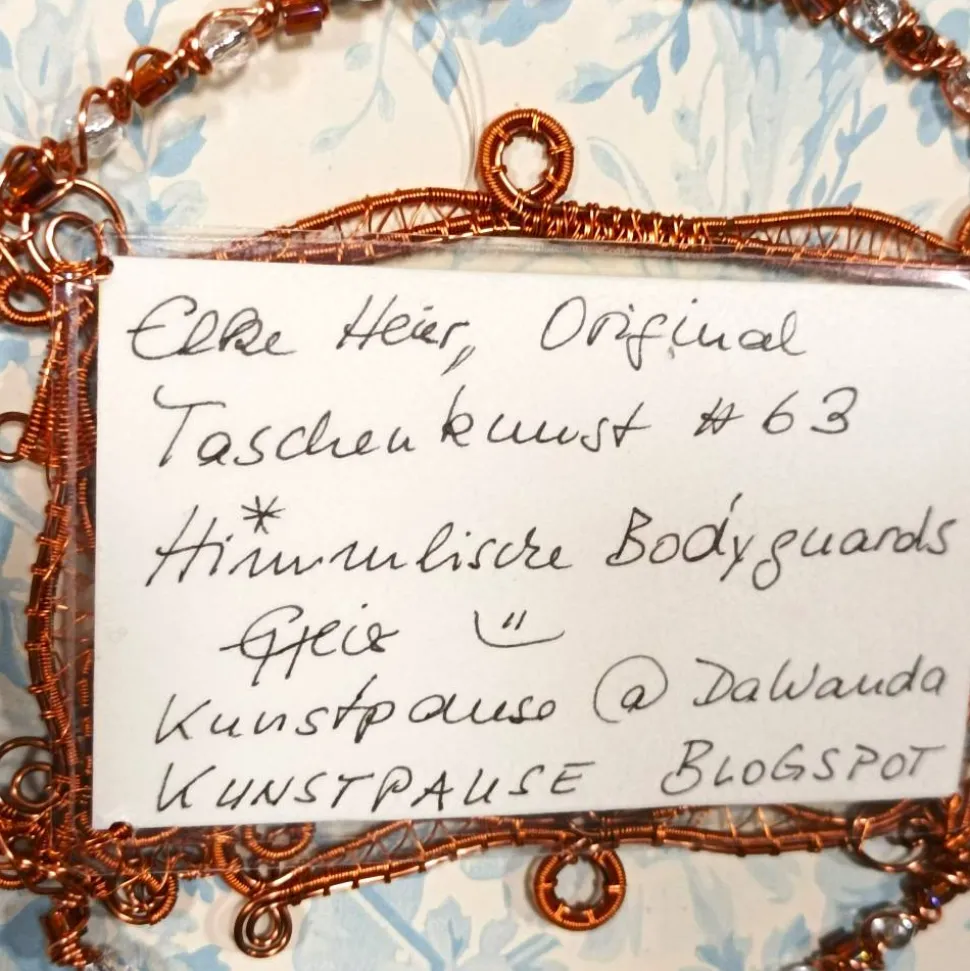 Elke Heier, Original
Taschenkunst #63
*
Himmlische Bodyguards
Kunstpause @ DaWanda
KUNSTPAUSE BLOGSPOT